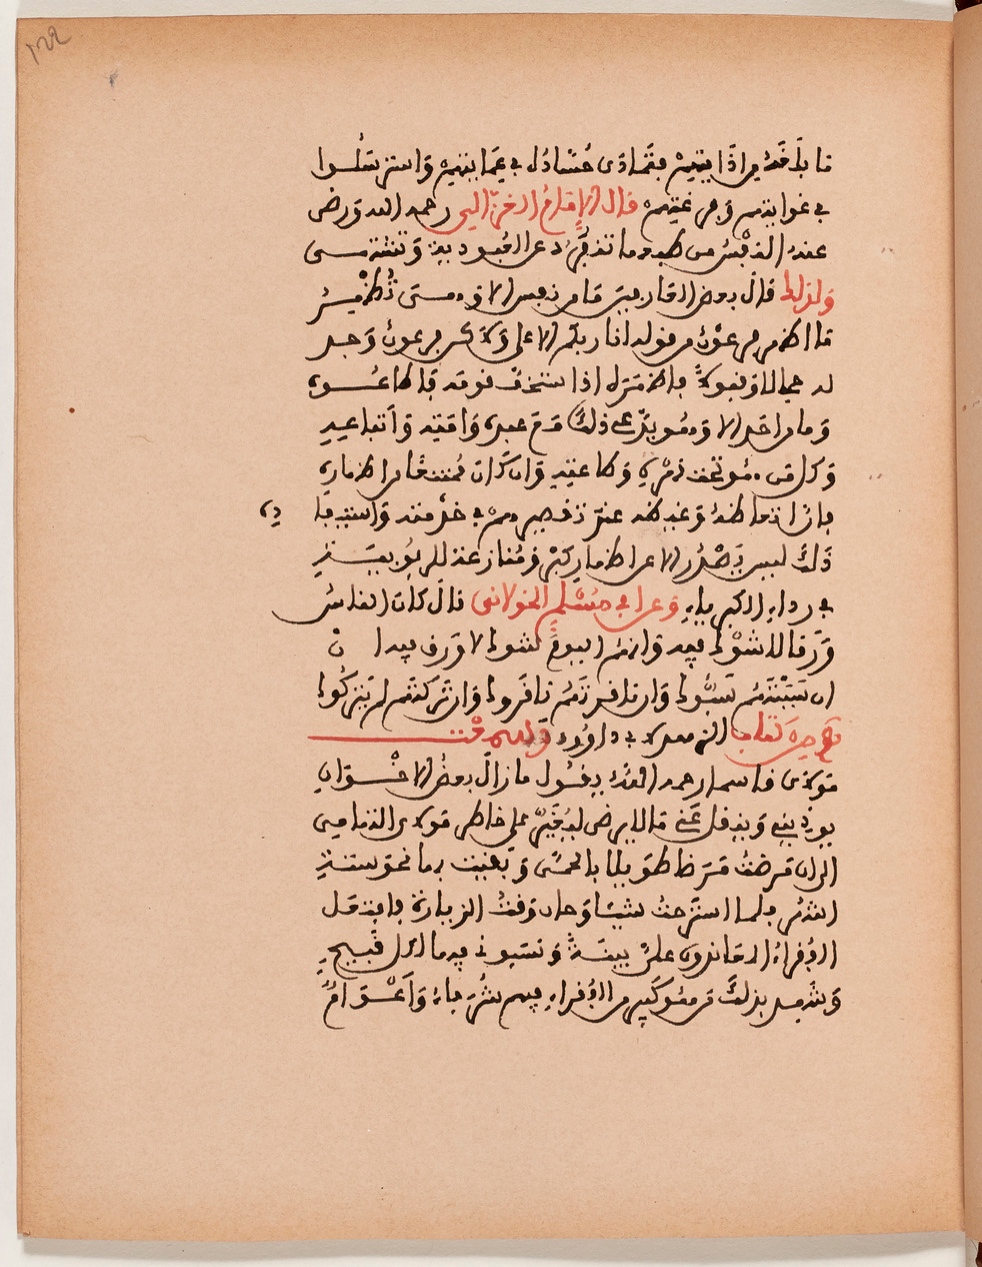 ما بلغته من اذا يتهم فتمادى حسادك في عمايتهم واسترسلوا
في غوايتهم وفي غيهم قال الامام الغزالي رحمه الله ورضي
عنه النفس من طبعها تنفرد عن العبودية وتنتهي
ولذلك قال بعض العارفين ما من نفس الا وهي تظهر
ما اظهر فرعون من قوله انا ربكم الاعلى ولاكن فرعون وجد
له مجالا وقبولا فاظهره اذا ستخف قومه فاطاعوه
وما من احد الا وهو يدعي ذلك مع عبده وامته واتباعه
وكل من هو تحت قهره وطاعته وان كان ممتنعا من اظهاره
فان امتعاظه وغيظه عند تقصيرهم في خدمته واستبعا
ذلك ليس يصدر الا عن اظهار كبر ومنازعة للربوبية
في رداء الكبرياء وعن ابي مسلم الخولاني قال كان الناس
ورقا لا شوك فيه وانتم اليوم شوك لا ورق فيه ا ن
ان سببتهم سبوك وان نافرتهم نافروك وان تركتهم لم يتركوك
الى معرك في داوود وسمعت
مولاي قاسما رحمه الله يقول ما زال بعض الاخوان
يوذيني وينقل عني ما لا يرضي ليغير علي خاطر مولاي التهامي
الى ان مرضت مرضا طويلا بالحمى وبقيت بها نحو ستة
اشهر فلما استرحت شيئا وحان وقت الزيارة فانتقل
الفقراء الحاقدون على بينة ونسبوني فيها لكل قبيح
وشهد بذلك من هو كبير من الفقراء فيهم شرفاء واعوام